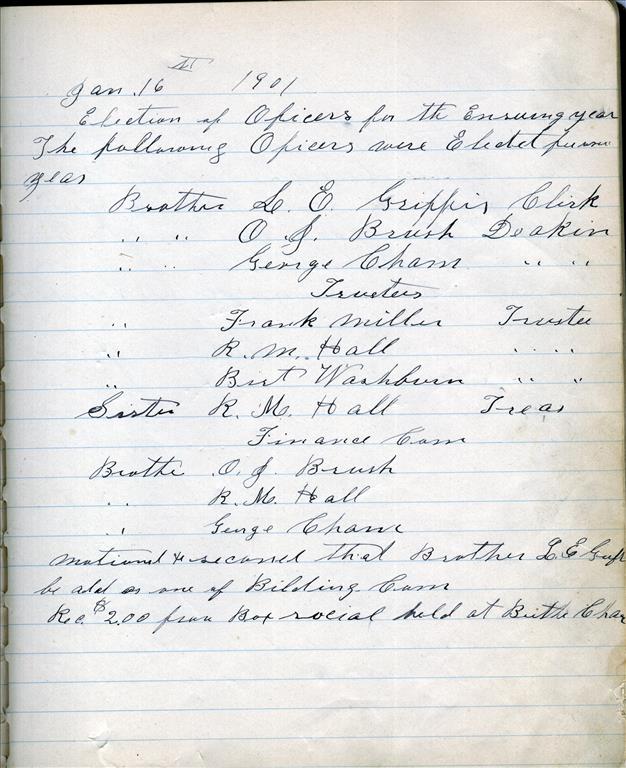 Jan. 16 1901
Election of Oficers for th Ensuing year
The following Oficers were Electet
year
Brother L. E. Griffis Clirk
" " O. J. Brush Deakin
" " George Cham " "
Trustees
" Frank Miller Trustee
" R. M. Hall " "
" Birt Washburn " "
Sister R. M. Hall Treas
Finance Com
Brothe O. J. Brush
" R. M. Hall
" George Cham
motiond & second that Brother L. E. Grif
be add as one of Bilding Com
Rec. $2.00 from Box social held at Brothe Cha